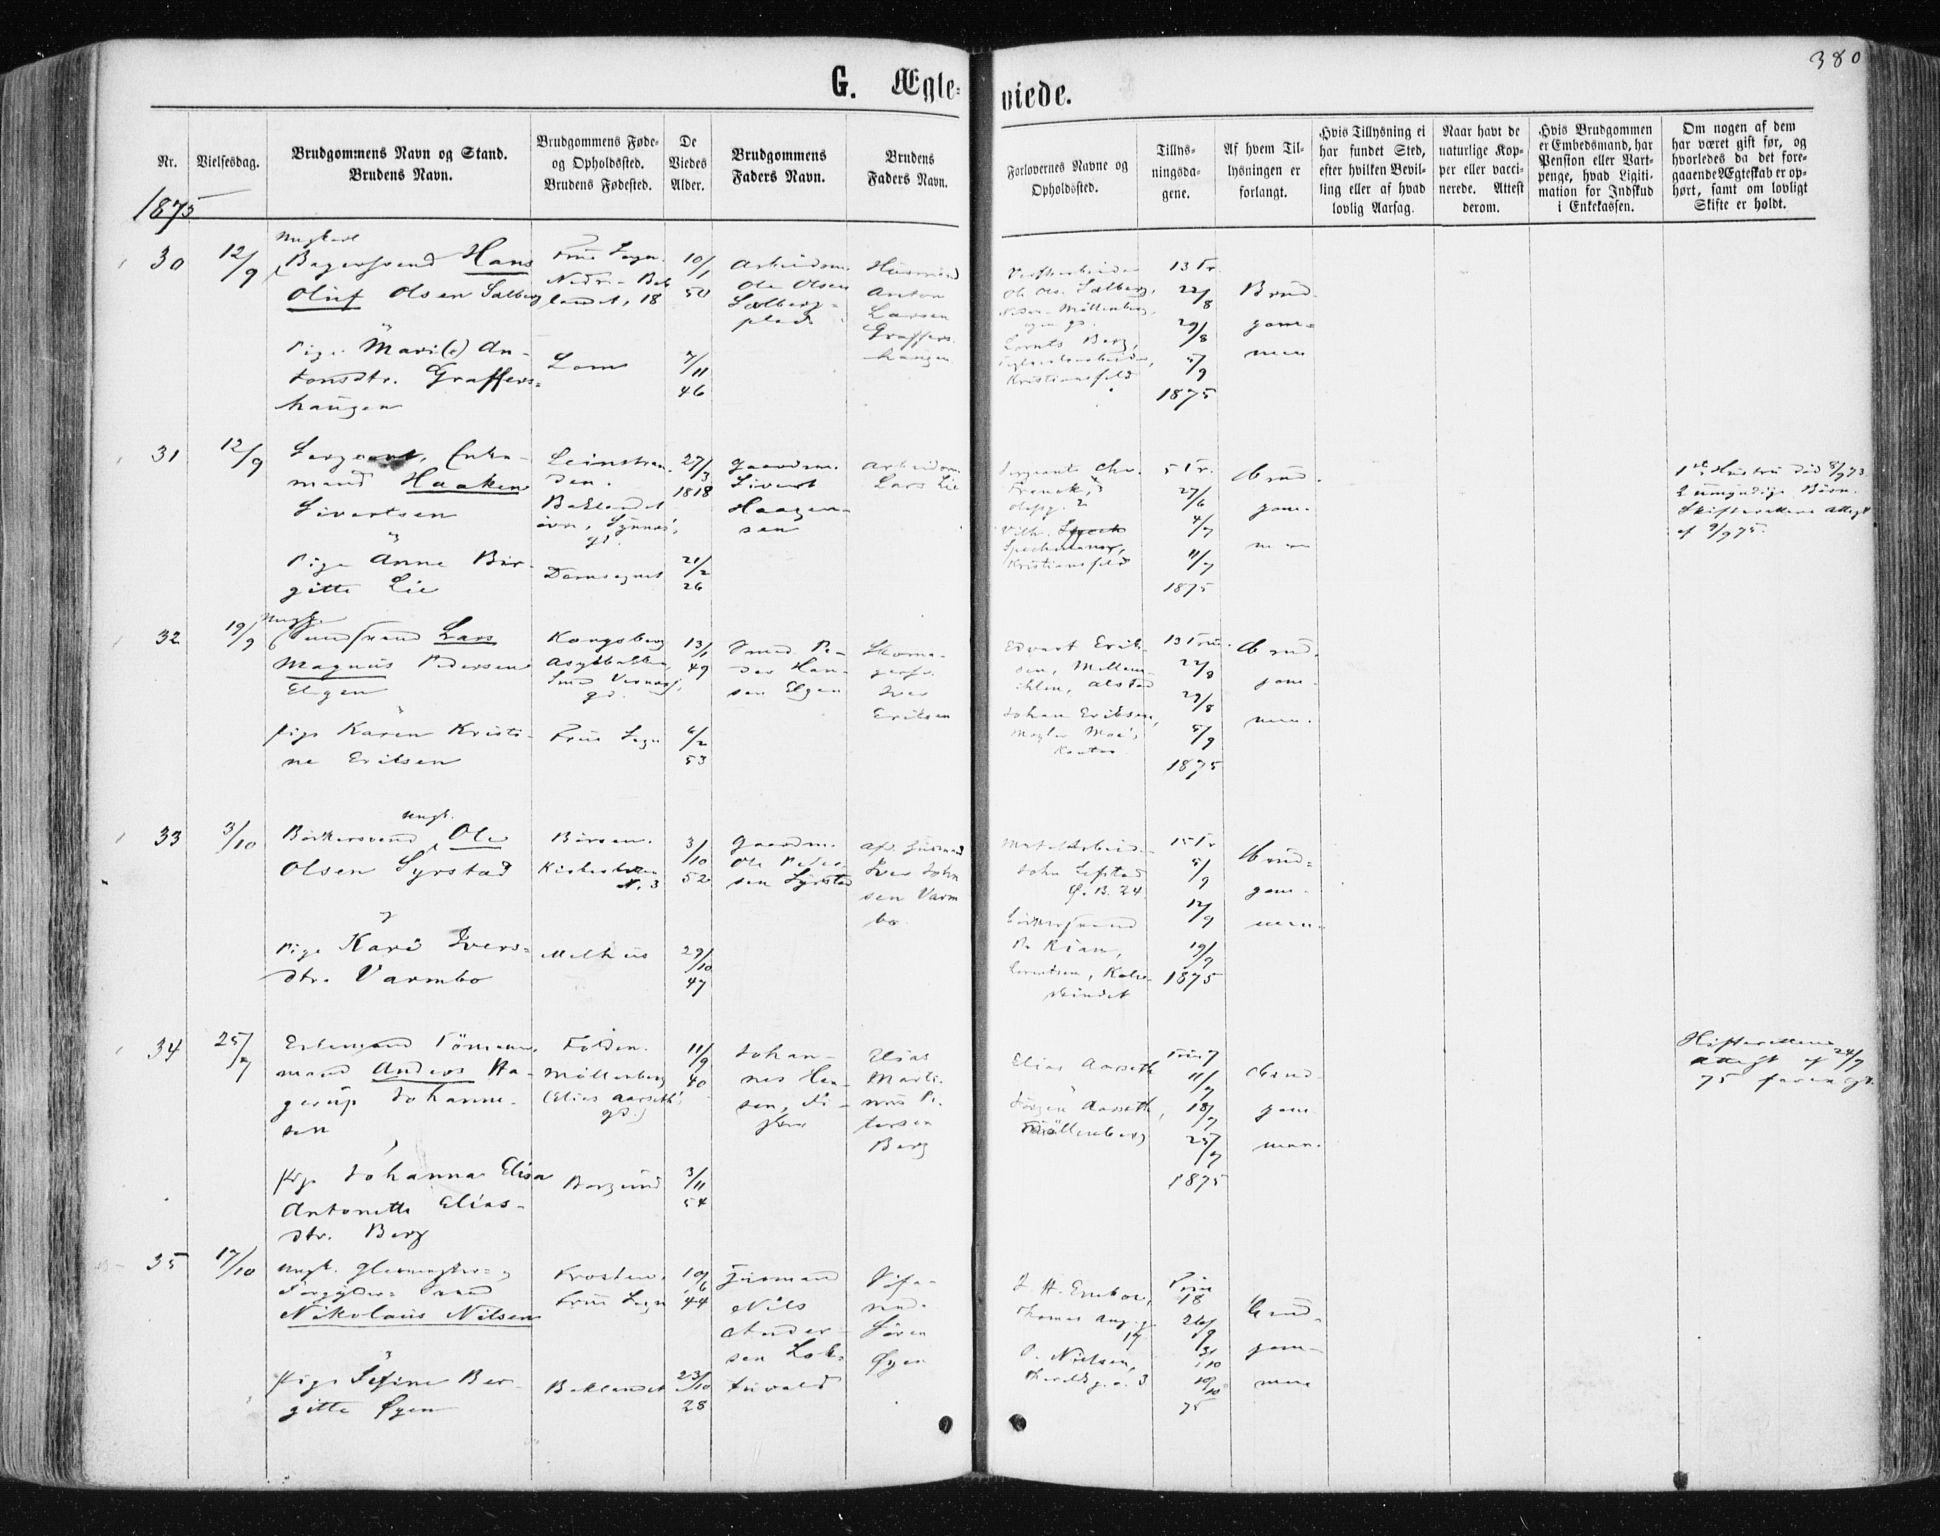 380
G. Ægte-
viede.
Nr.
Vielsesdag.
Brudgommens Navn og Stand.
Brudens Navn.
Brudgommens Føde-
og Opholdssted.
Brudens Fødested.
De
Viedes
Alder.
Brudgommens
Faders Navn.
Brudens
Faders Navn.
Forlovernes Navne og
Opholdssted.
Tillys-
ningsda-
gene.
Af hvem Til-
lysningen er
forlangt.
Hvis Tillysning ei
har fundet Sted,
efter hvilken Bevil-
ling eller af hvad
lovlig Aarsag.
Naar havt de
naturlige Kop-
per eller vacci-
nerede. Attest
derom.
Hvis Brudgommen
er Embedsmand, har
Pension eller Vart-
penge, hvad Ligiti-
mation for Indskud
i Enkekassen.
Om nogen af dem
har været gift før, og
hvorledes da det fore-
gaaende Ægteskab er op-
hørt, samt om lovligt
Skifte er holdt.
1875
30
12/9
Ungkarl
Bagersvend Hans
Oluf Olsen Salberg
Pige Mari(e) An-
tonsdtr. Graffers-
haugen
Frue Sogn
Nedre Bak-
landet, 18
Lom
10/1
50
7/11
46
Arbeidsm.
Ole Olsen
Salberg-
plads
Husmand
Anton
Larsen
Graffers-
haugen
Ole Ols. Salberg,
Lornts Berg,
Kristiansfeld
13 Tr.
22/8
29/8
5/9
1875
Brud-
gom-
men
31
12/9
Sergeant, Enke-
mand Haaken
Sivertsen
Pige Anne Bir-
gitte Lie
Leinstran-
den.
Baklandet
Domsognet
27/3
1818
21/2
26
Gaardm.
Sivert
Haagen-
sen
Arbeidsm.
Lars Lie
Sergeant Chr.
Vilh.
Speckmann,
Kristiansfeld
5 Tr.
27/6
4/7
11/7
1875
Brud-
gom-
men
1ste Hustru død 8/9 73
2 umyndige Børn.
Skifterettens Attest
af 9/9 75.
32
19/9
Ungk.
Lars
Magnus Pedersen
Elgen
Pige Karen Kristi-
ne Eriksen
Kongsberg
Frue Sogn
13/1
49
6/2
53
Smed Pe-
der Han-
sen Elgen
Skoma-
gersv.
Iver
Eriksen
Edvart Erik-
sen, Mellem-
ihlen,
Johan Eriksen,
13 Frue
22/8
29/8
5/9
1875
Brud-
gom-
men.
33
3/10
Ungk.
Bødkersvend, Ole
Olsen Syrstad
Pige Kari Ivers-
dtr. Varmbo
Børsen.
Melhus
3/10
52
29/10
47
Gaardm.
Ole Peder-
sen Syrstad
Afd. Husmand
Iver John-
sen Varm-
bo.
John
Bødkersvend
P. Rian,
Kalve-
skindet
15 Tr
5/9
12/9
19/9
1875
Brud-
gom-
men
34
25/7
Enkemand Tømmer-
mand Anders Ha-
gerup Johanne-
sen
Pige Johanna Elisa
Antonette Elias-
dtr. Berg
Folden.
Møllenberg
(Elias Aarseth's
gd.)
Borgund
11/9
40
3/11
54
Johan-
nes Han-
sen, Fi-
sker
Elias
Marti-
nus Pe-
tersen
Berg
Elias Aarseth
Jørgen Aarseth,
Møllenberg
Frue 7
11/7
18/7
25/7
1875
Brud-
gom-
men.
Skifterettens
Attest af 24/7
75 forevist.
35
17/10
Ungk. Glarmester- og
Forgylder-svend
Nikolaus Nilsen
Pige Sefine Ber-
gitte Øyen
Frosten.
Frue Sogn
Baklandet
19/6
44
23/10
28
Husmand
Nils
Ander-
sen Lok-
tuvald
Søren
Øyen
Thomas Ang. g.
17
P. Nielsen,
Frue
18
26/9
3/10
10/10
75
Brud-
gom-
men